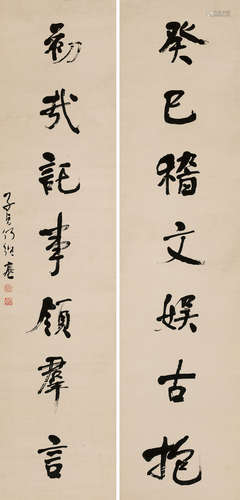 癸巳稽文娛古抱
初哉記事領羣言
子貞何紹基